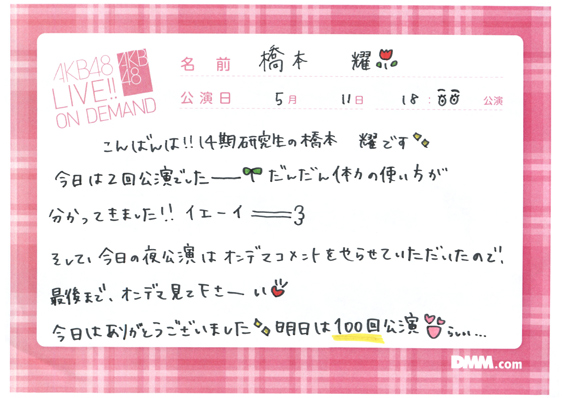 AKB48
LIVE!!
ON DEMAND
AKB
48
名前 橋本 耀
公演日 5月 11日 18:00 公演
こんばんは!!14期研究生の橋本 耀です
今日は2回公演でしたーーだんだん体力の使い方が
分かってきました!!イエーイ
そして今日の夜公演はオンデマコメントをやらせていただいたので、
最後まで、オンデマ見て下さーい
今日はありがとうございました明日は100回公演らしい…
DMM.com